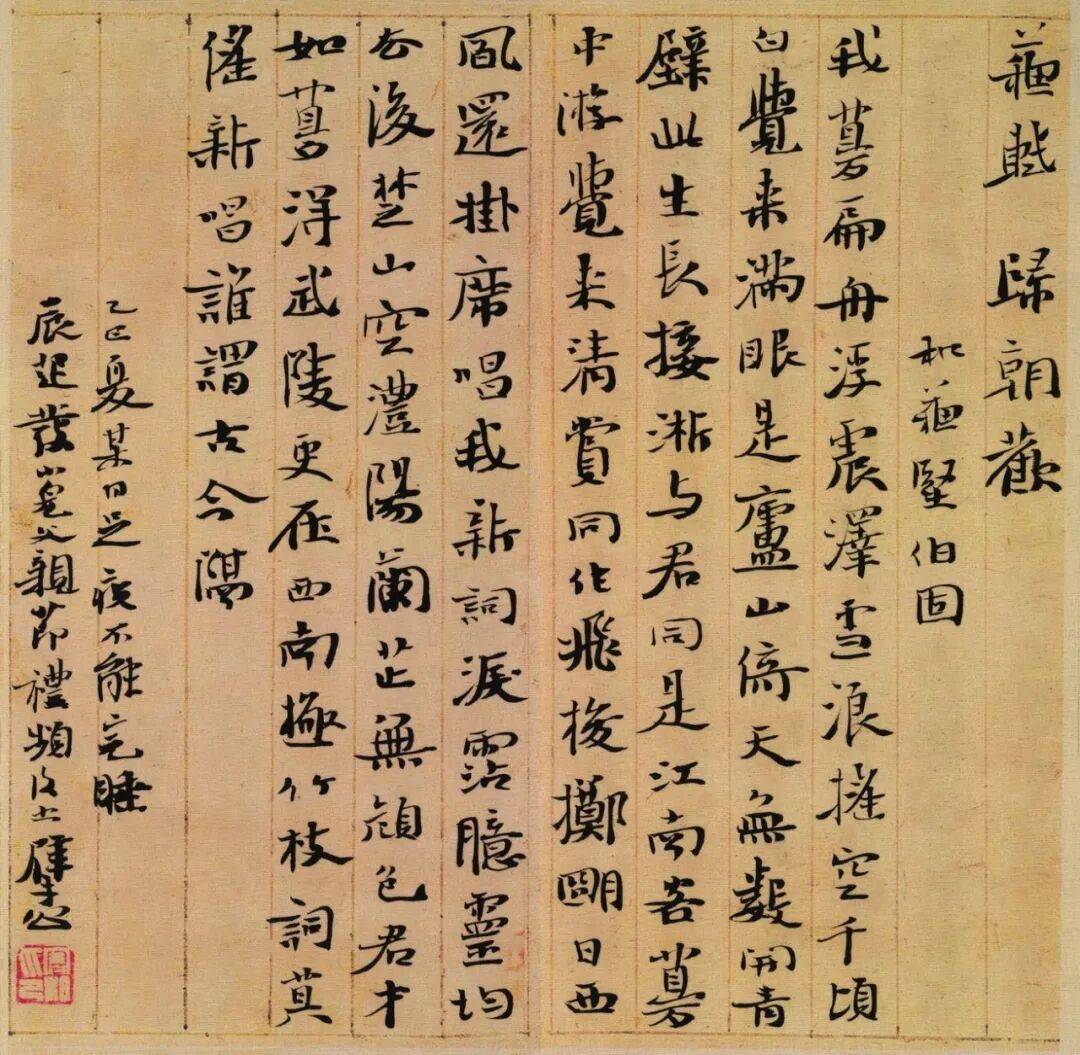 蘇軾 歸朝歡
和蘇堅伯固
我夢扁舟浮震澤雪浪搖空千頃
白覺来滿眼是廬山倚天無數開青
壁此生長接淅与君同是江南客夢
中游覺来清賞同作飛梭擲朙日西
風還掛席唱我新詞淚霑臆靈均
去後楚山空澧陽蘭芷無顔色君才
如夢得武陵更在西南極竹枝詞莫
傜新唱誰謂古今隔
乙巳夏某日是夜不能完睡
晨起發父親節禮